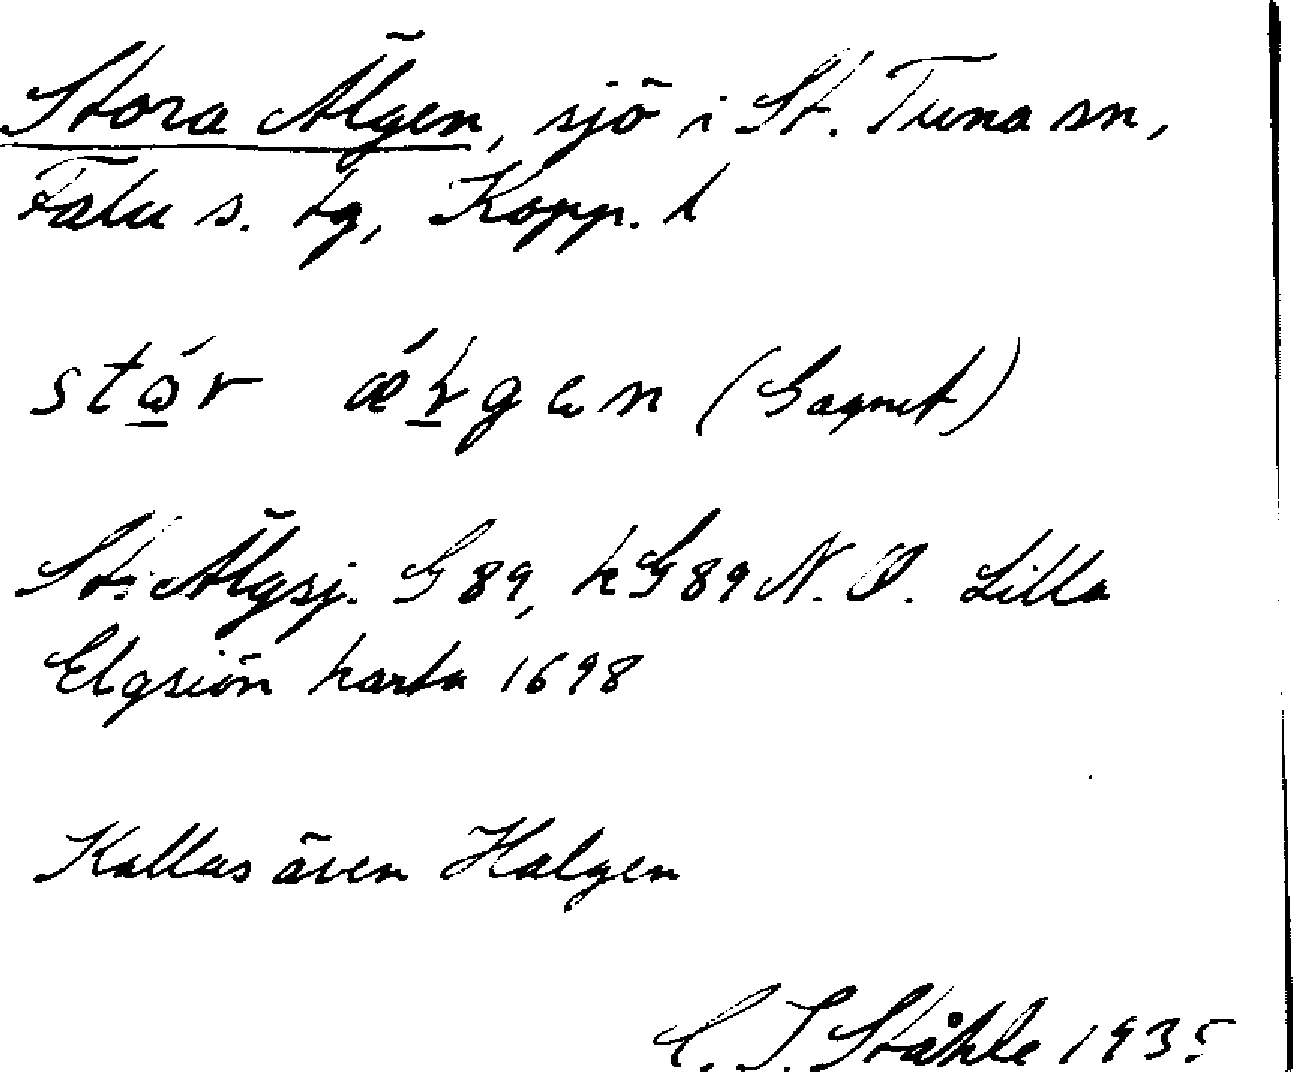 Stora Älgen, sjö i St. Tuna sn,
Falu s. tg, Kopp. l
(Gagnef)
St. Älgsj. G 89, kG89 N. O. Lilla
Elgsiön karta 1698
Kallas även Halgen
C. I. Ståhle 1935